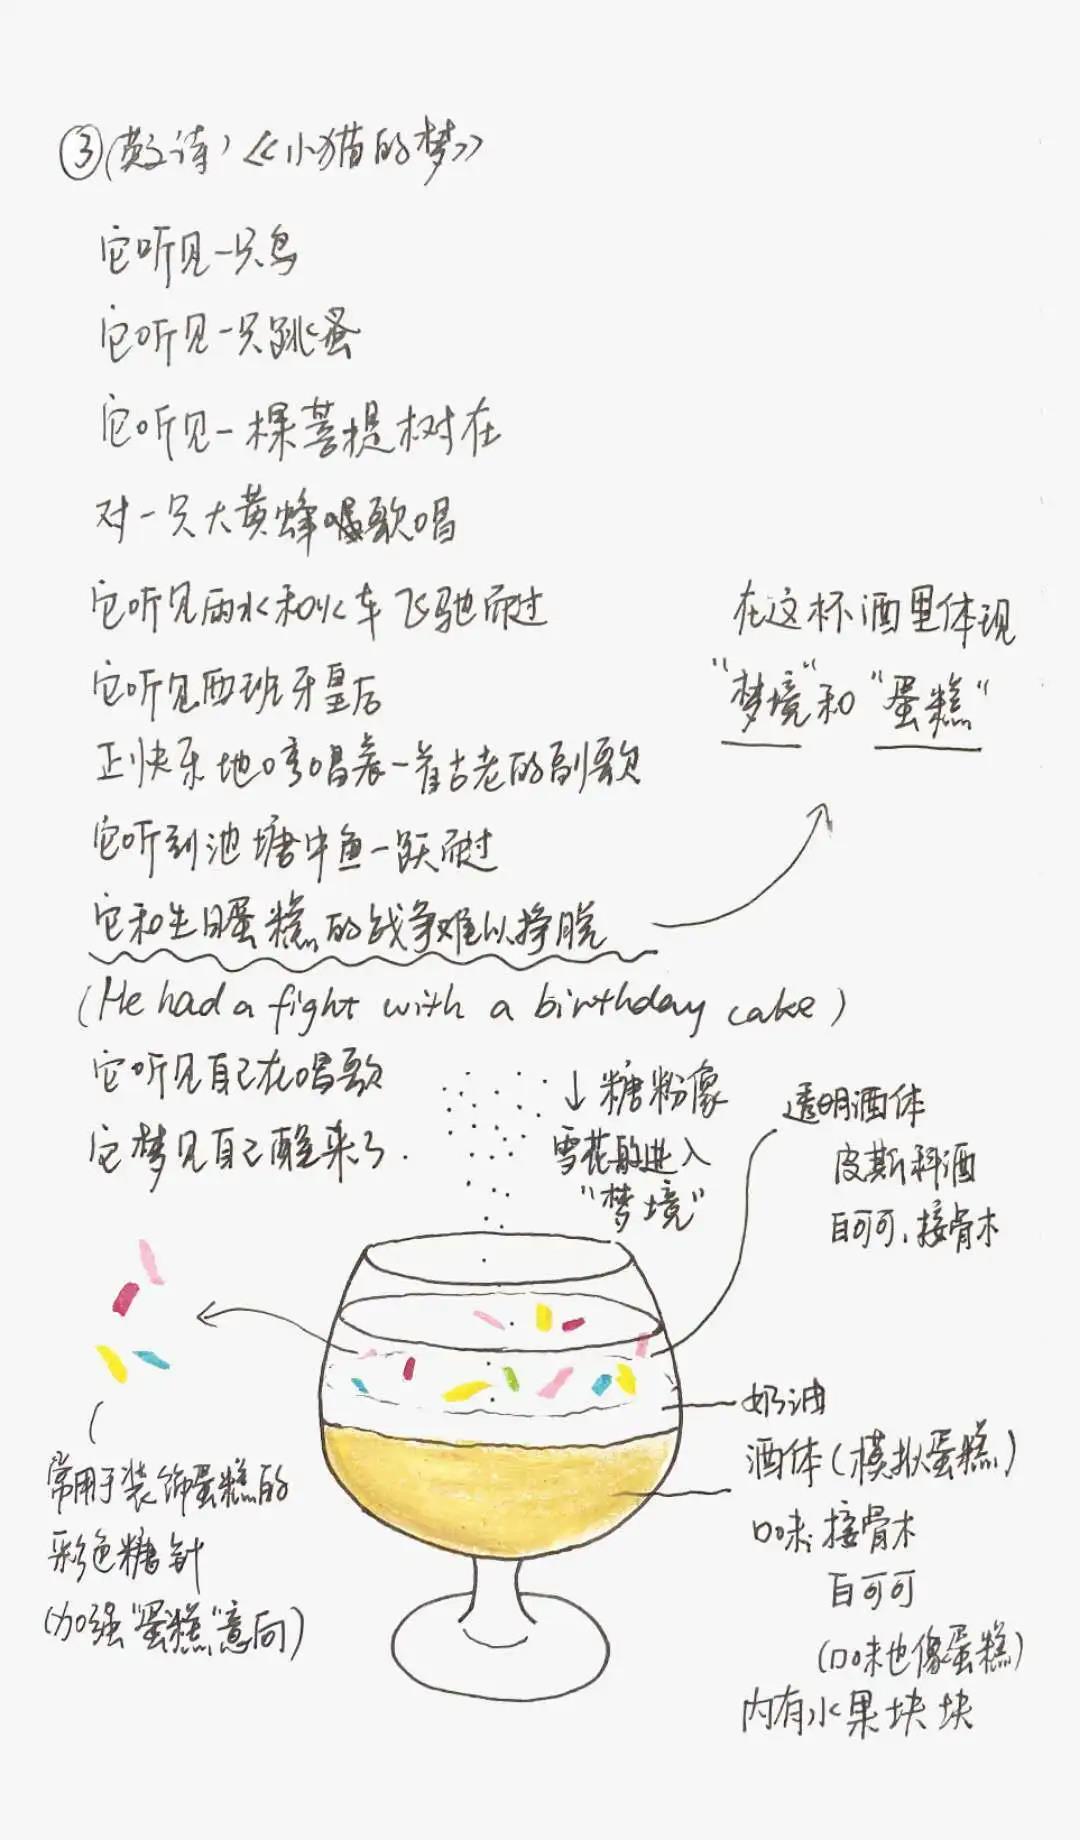 ③(英文诗)《小猫的梦》
它听见一只鸟
它听见一只跳蚤
它听见一棵菩提树在
对一只大黄蜂唱歌唱
它听见雨水和火车飞驰而过
它听见西班牙皇后
正快乐地哼唱着一首古老的副歌
它听到池塘中鱼一跃而过
它和生日蛋糕的战争难以挣脱
(He had a fight with a birthday cake)
它听见自己在唱歌
它梦见自己醒来了.
在这杯酒里体现
"梦境"和"蛋糕"
↓糖粉像
雪花般进入
"梦境"
透明酒体
皮斯科酒
白可可、接骨木
常用于装饰蛋糕的
彩色糖针
(加强"蛋糕"意向)
奶油
酒体(模拟蛋糕)
口味:接骨木
白可可
(口味也像蛋糕)
内有水果块块